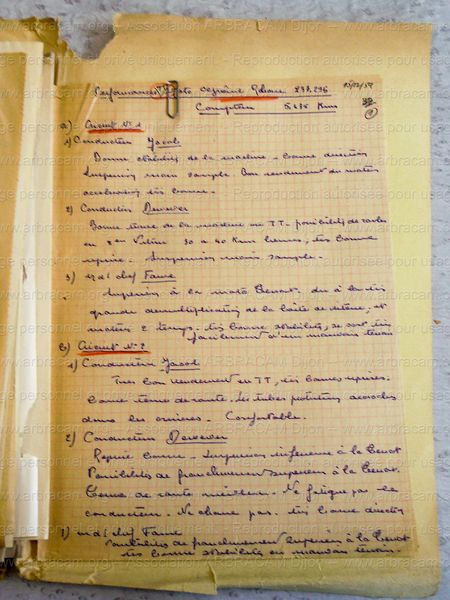 Performances Moto 237.236
15/02/57
Compteur 5.635 Kms
a) Circuit N° 1
1) Conducteur Jacob
Bonne stabilité de la machine - bonne direction
Suspension moins souple. Bon rendement du moteur
accélération très bonne.
2) Conducteur Dewever
Bonne tenue de la machine en TT - possibilités de
en 2e vitesse 30 à 40 Kms heures, très bonne
reprise. Suspension moins souple.
3) mdl chef Fame
Supérieure à la moto Benot. du à la très
grande démultiplication de la boîte de vitesse, et
moteur 2 temps. très bonne stabilité, se sort très
facilement d'un mauvais terrain
b) Circuit N° 2
1) Conducteur Jacob
Très bon rendement en TT, très bonnes reprises.
bonne tenue de route. Les tubes protecteurs accroches
dans les ornières. Confortable.
2) Conducteur Dewever
Reprise bonne - Suspension inférieure à la Benot
Possibilités de franchissement supérieur à la Benot.
Tenue de route meilleure. Ne fatigue pas le
conducteur. Ne chauffe pas. très bonne direction
1) mdl chef Fame
Possibilités de franchissement supérieur à la Benot
très bonne stabilité en mauvais terrain.